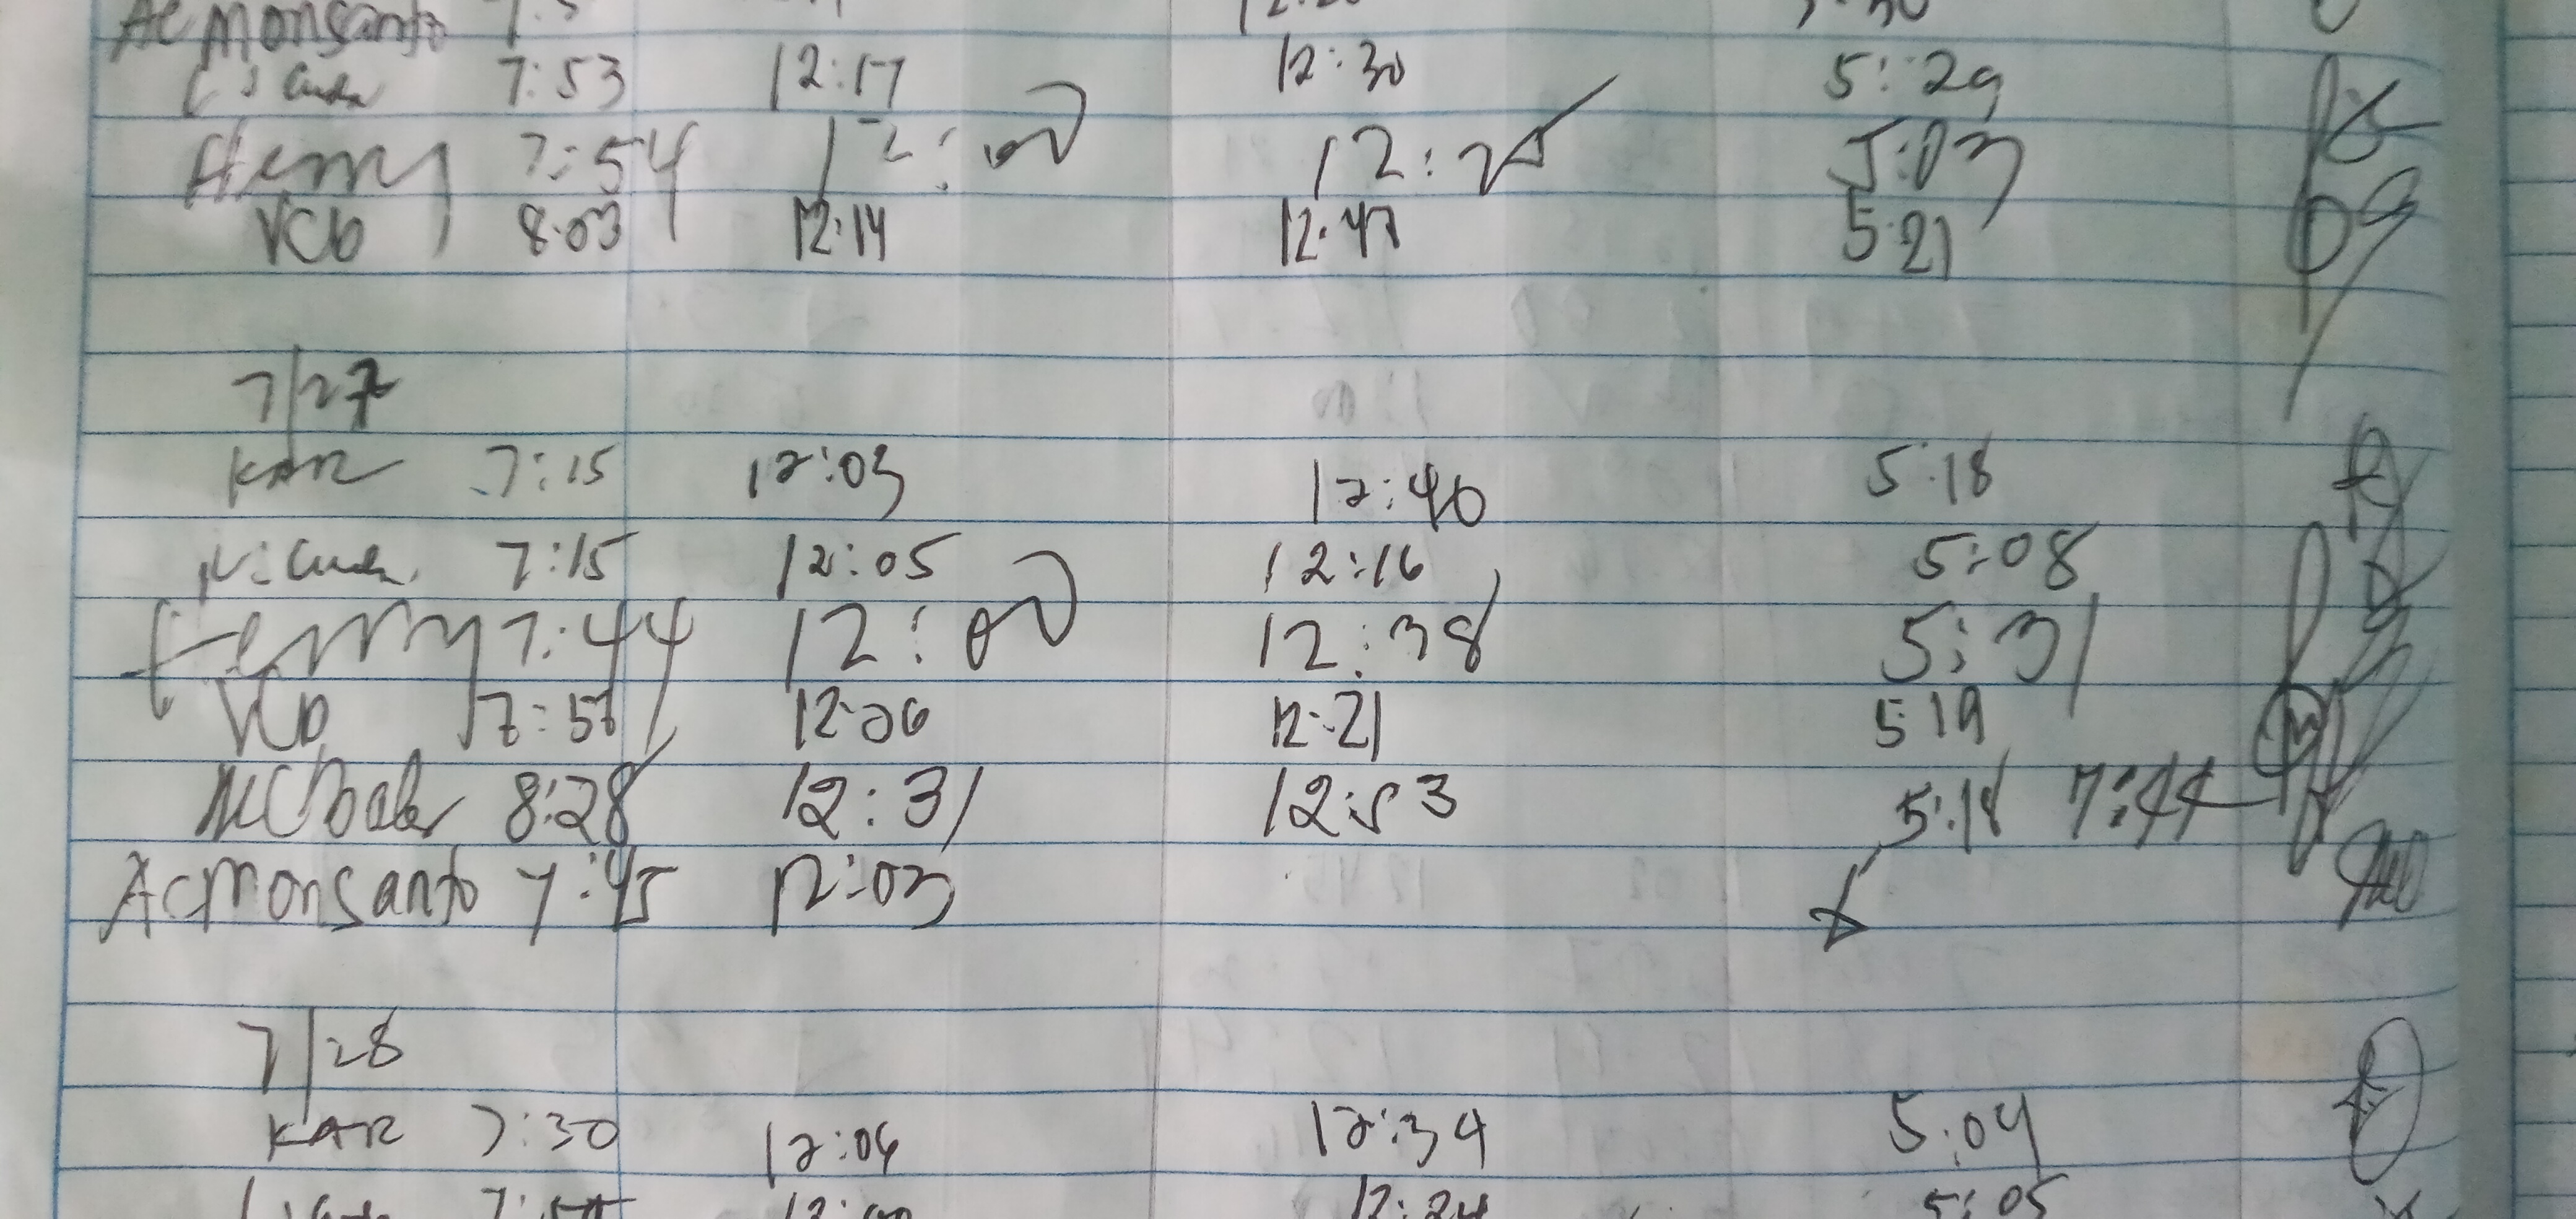 AC Monsanto
7:53 12:17 12:30 5:29
Henry 7:54 12:00 12:25 5:03
VCD 8:03 12:14 12:47 5:21
7/27
KAR 7:15 12:03 12:40 5:18
7:15 12:05 12:16 5:08
Henry 7:44 12:00 12:38 5:31
VCD 7:57 12:06 12:21 5:19
8:28 12:31 12:53 5:18 7:44
ACMonsanto 7:45 12:03
7/28
KAR 7:30 12:04 12:34 5:04
12:24 5:05